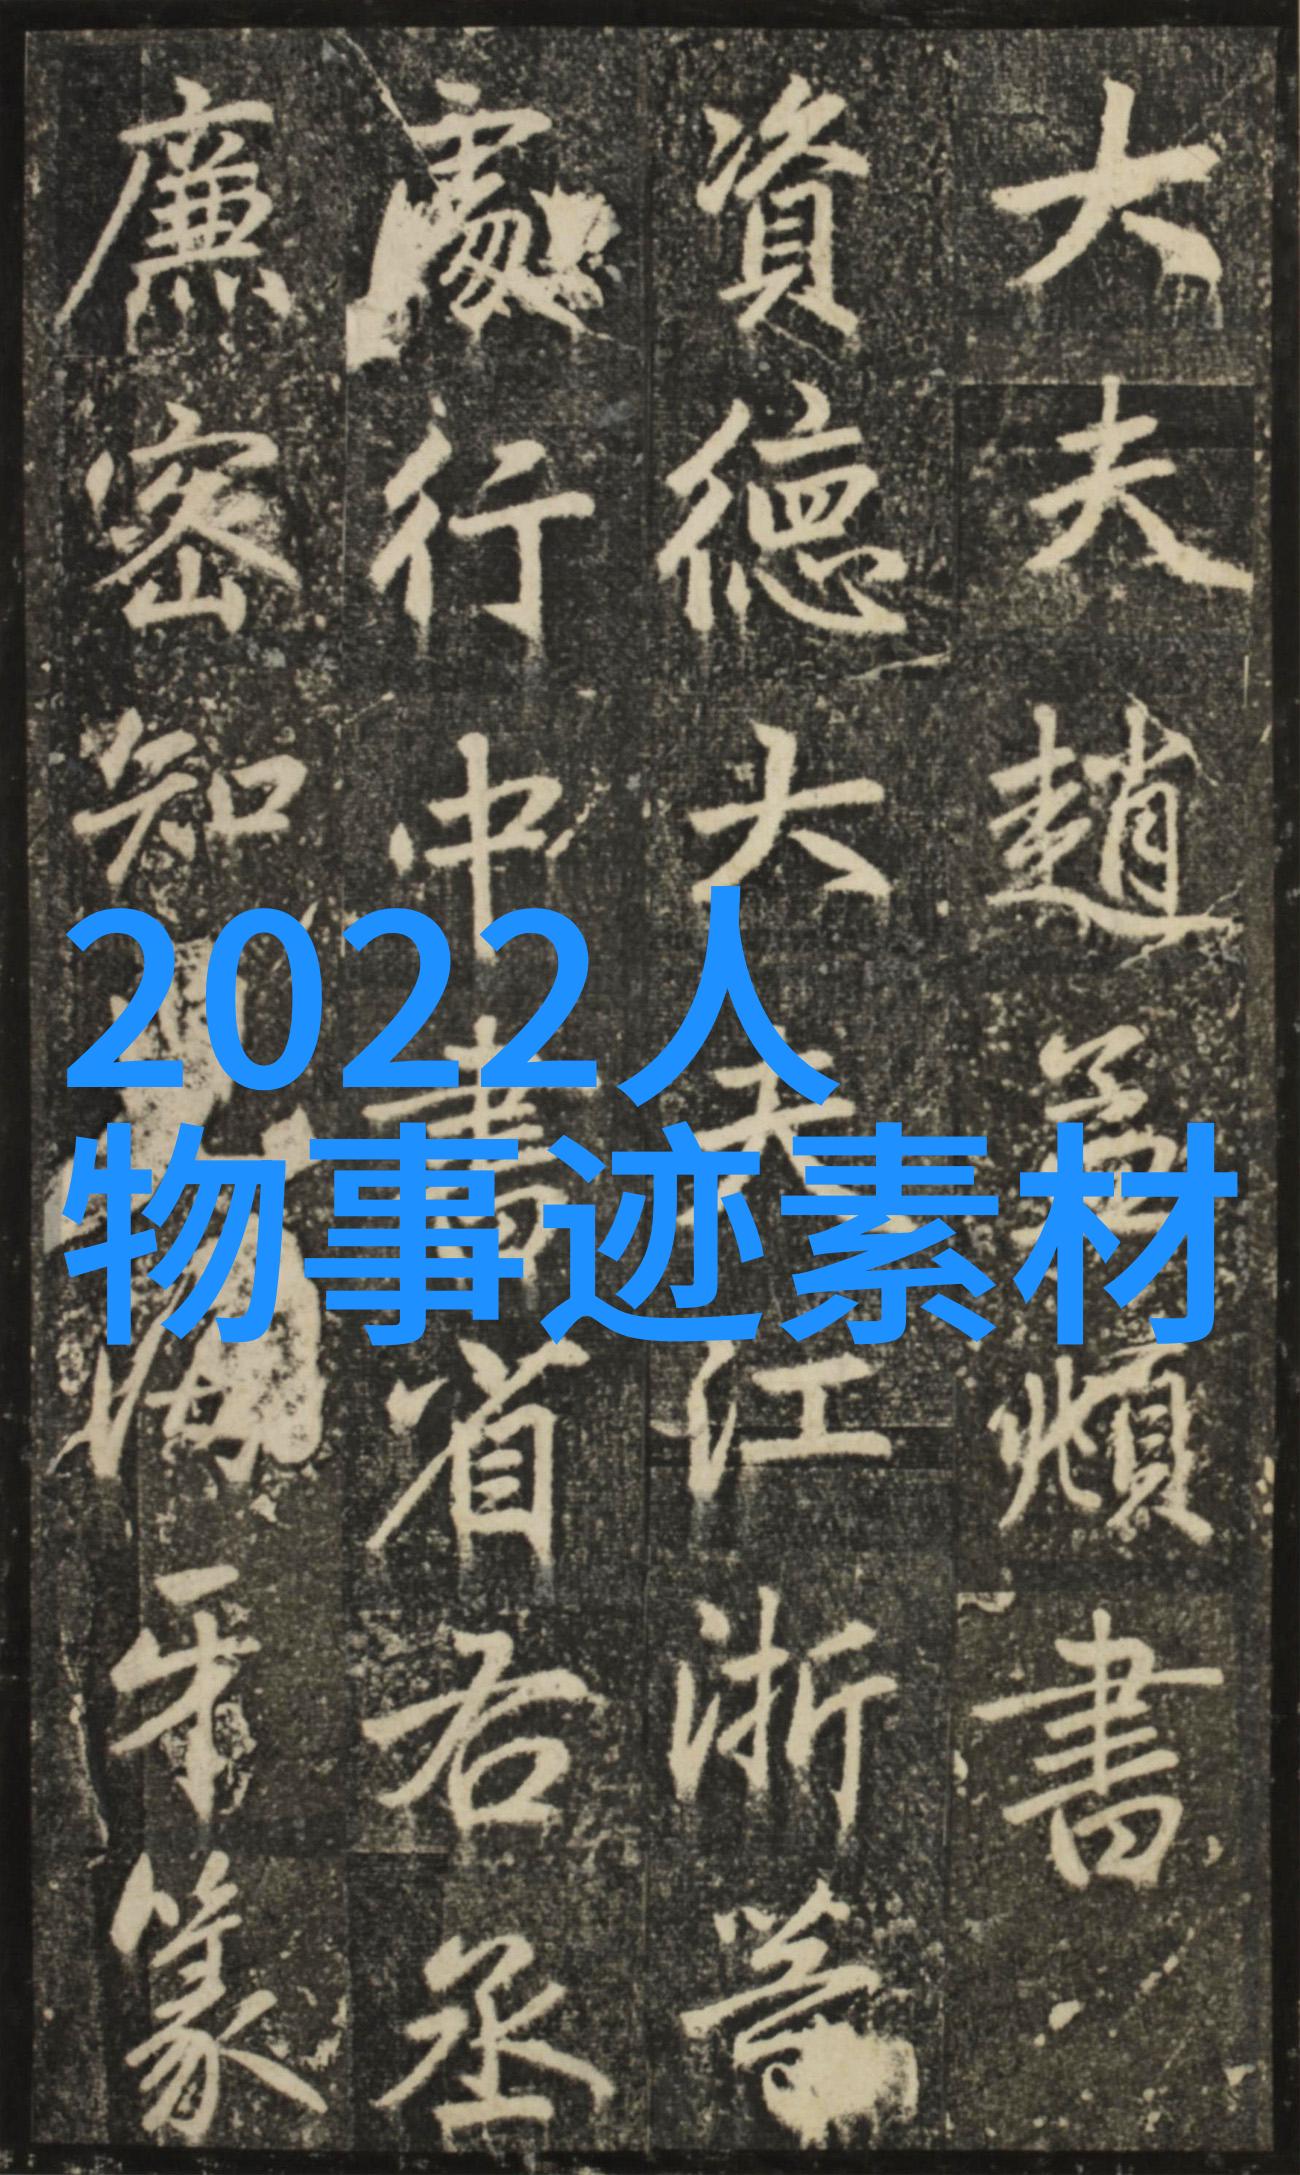 大夫趙孟頫書
資德大夫江浙等
處行中書省右丞
廉密知海牙篆
2022人
物事迹素材